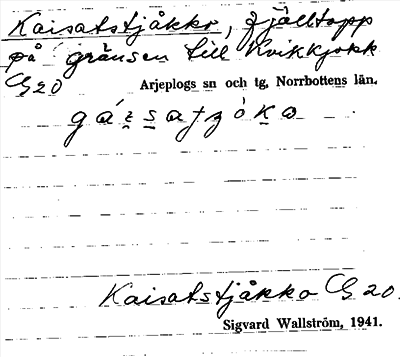 Kaisatstjåkko, fjälltopp
på gränsen till Kvikkjokk
Arjeplogs sn och tg, Norrbottens län.
Kaisatstjåkko
Sigvard Wallström, 1941.